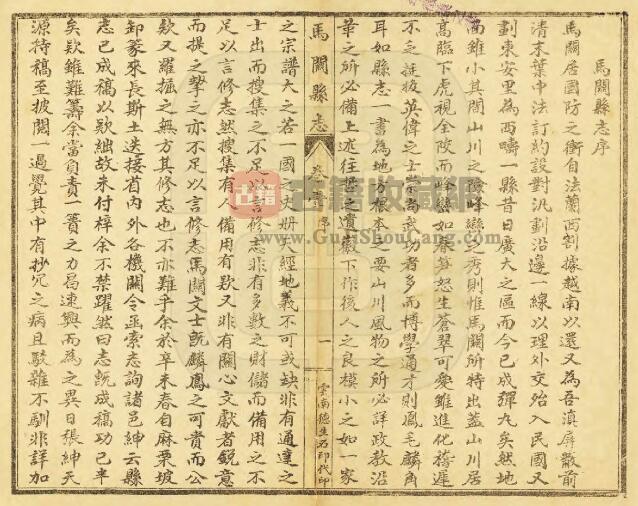 馬關縣志序
馬關居國防之衝自法蘭西割據越南以還又為吾滇屏蔽前
清末葉中法訂約設對汛劃沿邊一線以理外交殆入民國又
劃東安里為西疇一縣昔日廣大之區而今已成彈丸矣然地
面雖小其間山川之險峰巒之秀則惟馬關所特出蓋山川居
高臨下虎視全陂而峰巒如春笋怒生蒼翠可愛雖進化稽遲
不乏挺拔英偉之士崇尚武功者多而博學通才則鳳毛麟角
耳如縣志一書為地方根本之要山川風物之所必詳政教沿
革之所必備上述往哲之遺徽下作後人之良模小之如一家
馬關縣志
卷首
序
一
雲南德生石印代印
之宗譜大之若一國之史册天經地義不可或缺非有通達之
士出而搜集之不足以言修志非有多數之財儲而備用之不
足以言修志然搜集有人備用有款又非有關心文獻者銳意
而提之挈之亦不足以言修志馬關文士既麟鳳之可貴而公
欵又羅掘之無方其修志也不亦難乎余於辛未春自麻栗坡
卸篆來長斯土迭接省內外各機關令函索志詢諸邑紳云縣
志已成稿以欵絀故未付梓余不禁躍然曰志既成稿功已半
矣欵雖難籌余當負責一簣之力曷速興而為之異日張紳天
源持稿至披閱一過覺其中有抄冗之病且駁雜不馴非詳加
古籍收藏網
www.GujiShouCang.com